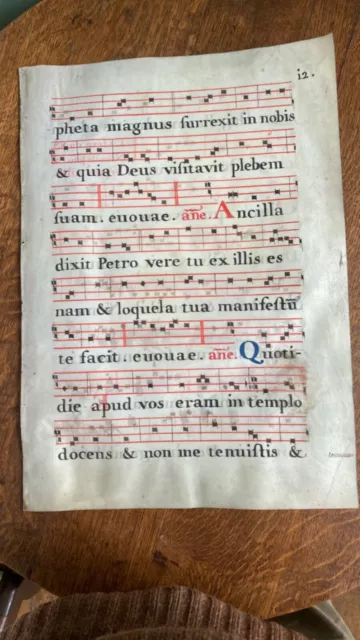 i2.
pheta magnus surrexit in nobis
& quia Deus visitavit plebem
suam. euouae. añe. Ancilla
dixit Petro vere tu ex illis es
nam & loquela tua manifestū
te facit. euouae. añe. Quoti-
die apud vos eram in templo
docens & non me tenuistis &